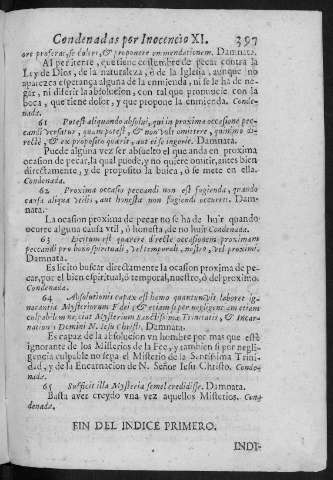 Condenadas por Inocencio XI. 397
ore proferat, se dolere, & proponere emmendationem. Damnata.
Al penitente, que tiene costumbre de pecar contra la
Ley de Dios, de la naturaleza, ò de la Iglesia, aunque no
aparezca esperança alguna de la enmienda, ni se le ha de ne-
gar, ni diferir la absolucion, con tal que pronuncie con la
boca, que tiene dolor, y que propone la enmienda. Conde-
nada.
61 Potest aliquando absolui, qui in proxima occasione pec-
candi versatur, quam potest, & non vult omittere, quinimo di-
rectè, & ex proposito quærit, aut ei se ingerit. Damnata.
Puede alguna vez ser absuelto el que anda en proxima
ocasion de pecar, la qual puede, y no quiere omitir, antes bien
directamente, y de proposito la busca, ò se mete en ella.
Condenada.
62 Proxima occasio peccandi non est fugienda, quando
causa aliqua vtilis, aut honesta non fugiendi occurrit. Dam-
nata.
La ocasion proxima de pecar no se ha de huir quando
ocurre alguna causa vtil, ò honesta, de no huir Condenada.
63 Licitum est quærere directè occasionem proximam
peccandi pro bono spirituali, vel temporali, nostro, vel proximi.
Damnata.
Es licito buscar directamente la ocasion proxima de pe-
car, por el bien espiritual, ò temporal, nuestro, ò del proximo.
Condenada.
64 Absolutionis capax est homo quantumvis laboret ig-
norantia Mysteriorum Fidei, & etiamsi per negligentiam etiam
culpabilem nesciat Mysterium Sanctissimæ Trinitatis, & Incar-
nationis Domini N. Iesu Christi. Damnata.
Es capaz de la absolucion vn hombre por mas que estè
ignorante de los Misterios de la Fee, y tambien si por negli-
gencia culpable no sepa el Misterio de la Santissima Trini-
dad, y de la Encarnacion de N. Señor Iesu Christo. Conde-
nada.
65 Sufficit illa Mysteria semel credidisse. Damnata.
Basta aver creydo vna vez aquellos Misterios. Con-
denada.
FIN DEL INDICE PRIMERO.
INDI-